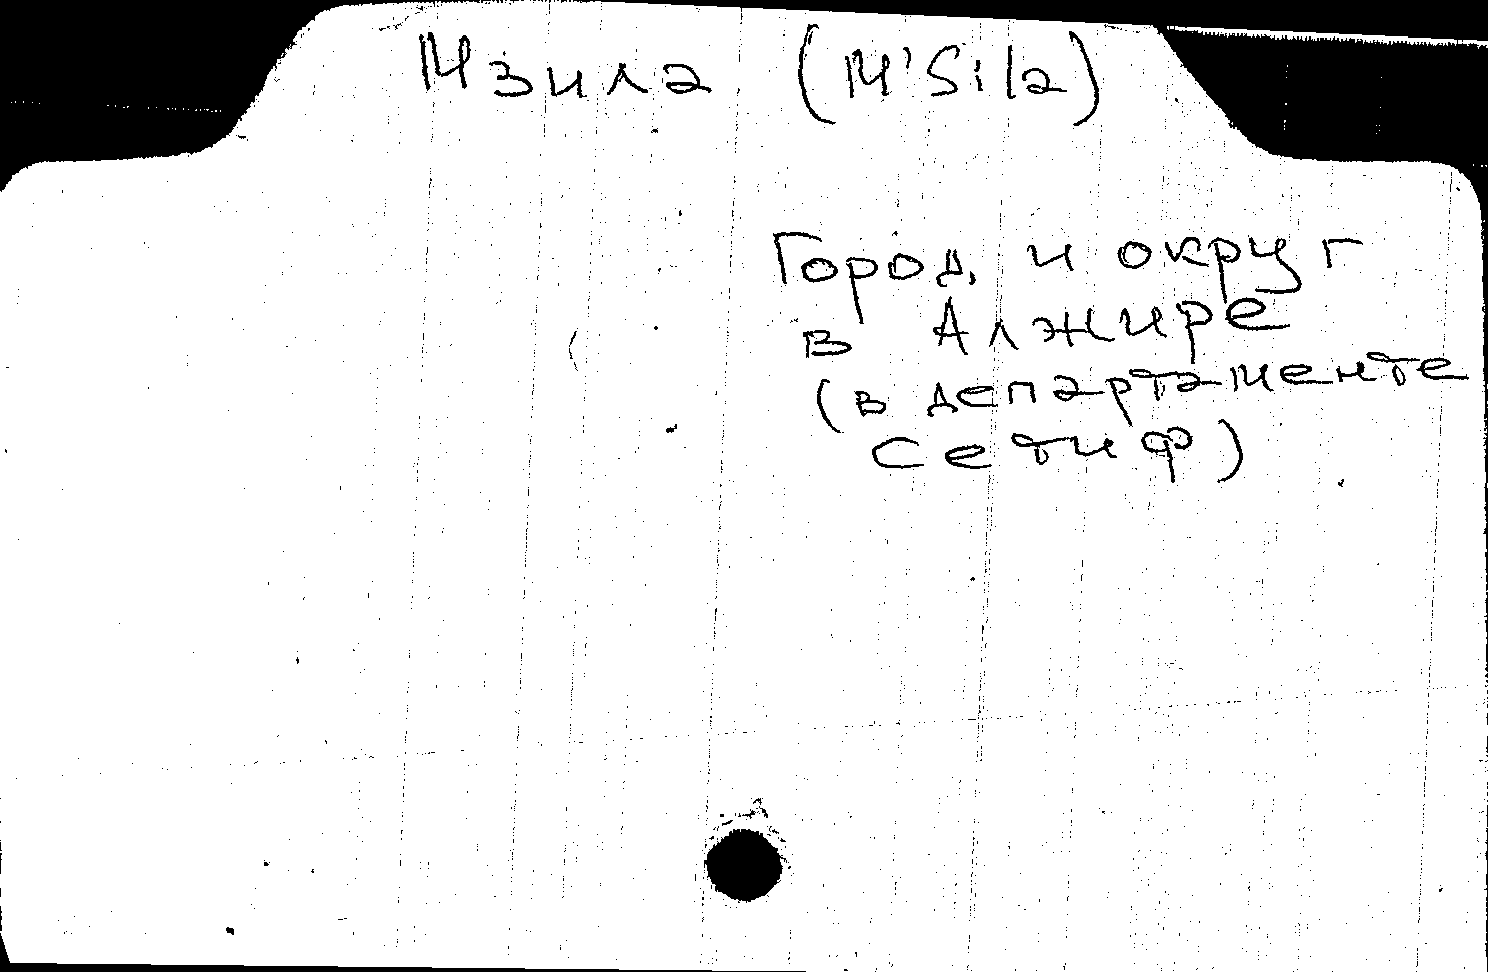 Мзила (M'Sila)
Город и округ
в Алжире
(в департаменте
Сетиф)